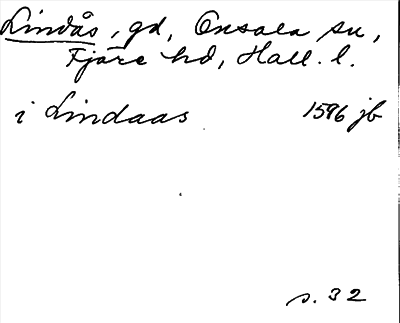 Lindås, gd, Onsala sn,
Fjäre hd, Hall. l.
i Lindaas 1596 jb
s. 32